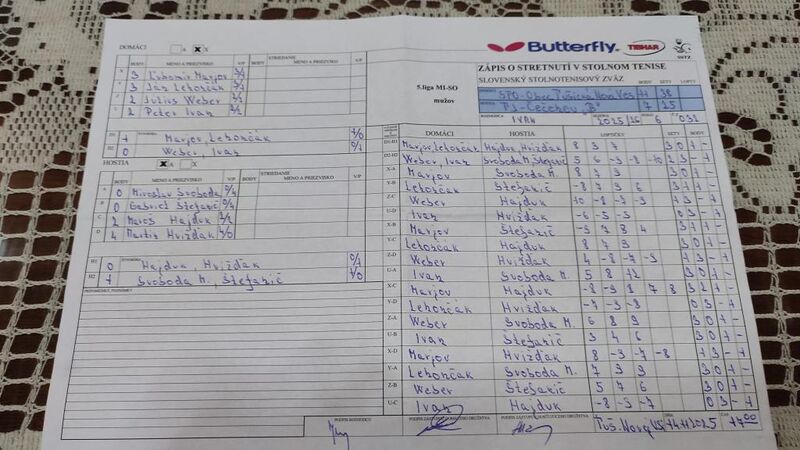 DOMÁCI A X
Butterfly TIBHAR SSTZ
ZÁPIS O STRETNUTÍ V STOLNOM TENISE
5.liga MI-SO
mužov
SLOVENSKÝ STOLNOTENISOVÝ ZVÄZ BODY SETY LOPTY
ŠPO-Obec Pušická Nová Ves 11 38
PJ-Čečehov "B" 7 25
IVAN 2025/26 6 031
BODY MENO A PRIEZVISKO V/P BODY STRIEDANIE MENO A PRIEZVISKO V/P
3 Ľubomír Marjov 3/1
3 Ján Lehončák 3/1
2 Július Weber 2/2
2 Peter Ivan 2/2
1 Marjov, Lehončák 1/0
0 Weber, Ivan 0/1
HOSTIA A X
BODY MENO A PRIEZVISKO V/P BODY STRIEDANIE MENO A PRIEZVISKO V/P
A 0 Miroslav Svoboda 0/4
B 0 Gabriel Štefanič 0/4
C 2 Maroš Hajduk 2/2
D 4 Martin Hvižďak 4/0
H1 0 Hajduk, Hvižďak 0/1
H2 1 Svoboda M., Štefanič 1/0
DOMÁCI HOSTIA LOPTIČKY SETY BODY
D1-H1 Marjov, Lehončák Hajduk, Hvižďak 8 3 7 3 0 1 -
D2-H2 Weber, Ivan Svoboda M. Štefanič 5 6 -3 -8 -10 2 3 - 1
X-A Marjov Svoboda M. 8 7 3 3 0 1 -
Y-B Lehončák Štefanič -8 7 3 6 3 1 1 -
Z-C Weber Hajduk 10 -8 -3 -3 1 3 - 1
U-D Ivan Hvižďak -6 -3 -3 0 3 - 1
X-B Marjov Štefanič -3 7 8 4 3 1 1 -
Y-C Lehončák Hajduk 8 7 3 3 0 1 -
Z-D Weber Hvižďak 4 -8 -7 -3 1 3 - 1
U-A Ivan Svoboda M. 5 8 12 3 0 1 -
X-C Marjov Hajduk -8 -3 8 7 8 3 2 1 -
Y-D Lehončák Hvižďak -7 -3 -8 0 3 - 1
Z-A Weber Svoboda M. 6 8 9 3 0 1 -
U-B Ivan Štefanič 3 4 6 3 0 1 -
X-D Marjov Hvižďak 8 -3 -7 -8 1 3 - 1
Y-A Lehončák Svoboda M. 7 3 9 3 0 1 -
Z-B Weber Štefanič 5 7 6 3 0 1 -
U-C Ivan Hajduk -8 -3 -7 0 3 - 1
PODPIS ROZHODCU PODPIS ZÁSTUPCU DOMÁCEHO DRUŽSTVA PODPIS ZÁSTUPCU HOSŤUJÚCEHO DRUŽSTVA
Puš. Nová Ves 14.11.2025 17 00